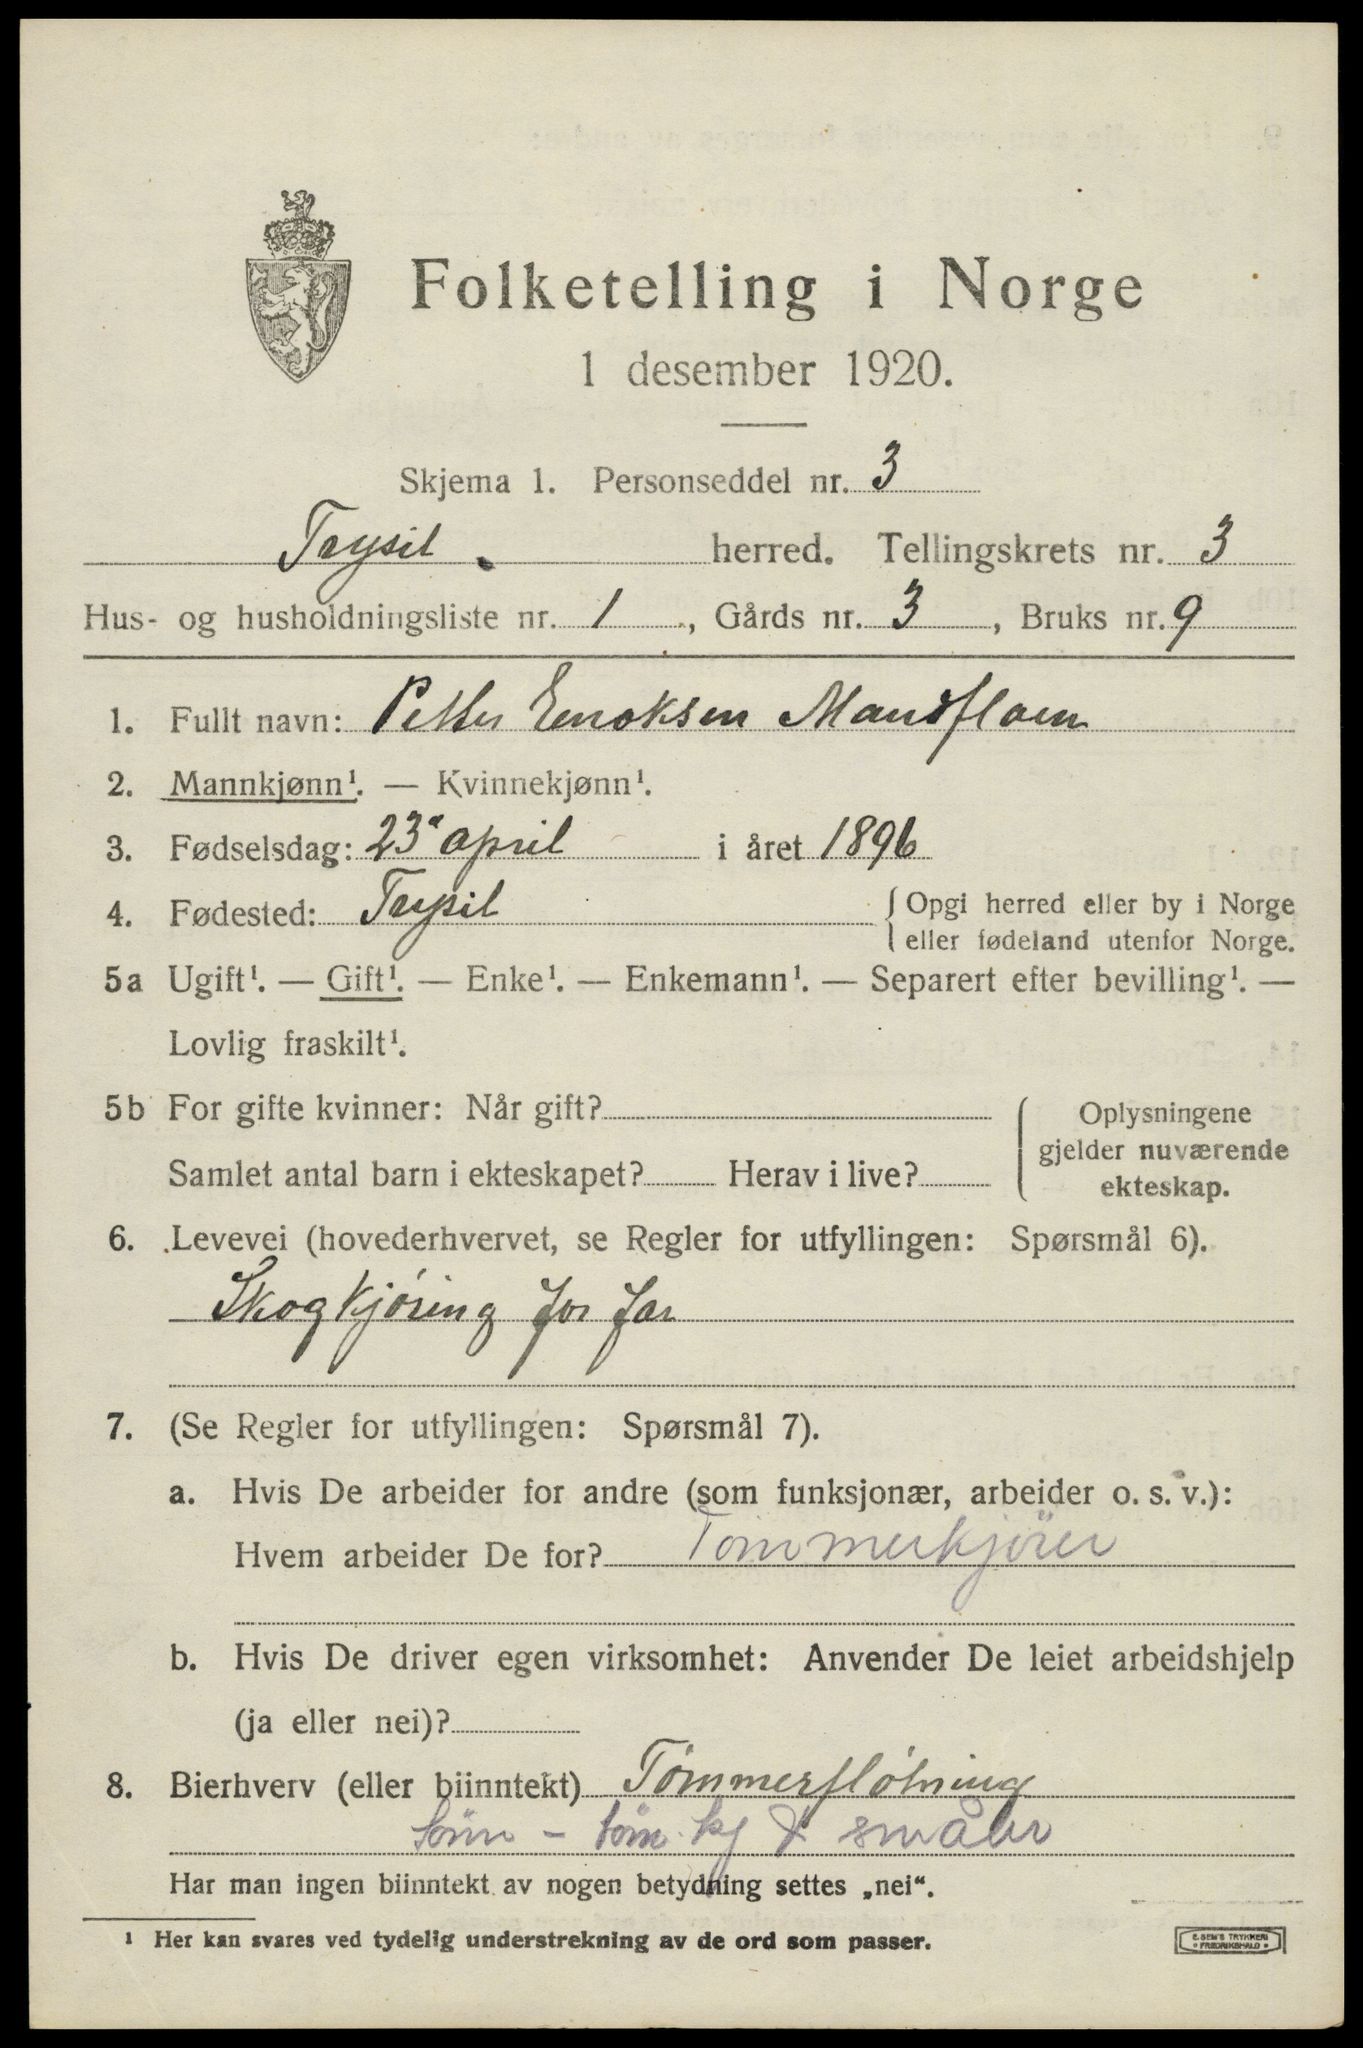 Folketelling i Norge
1 desember 1920.
Skjema 1. Personseddel nr. 3
Trysil. herred. Tellingskrets nr. 3
Hus- og husholdningsliste nr. 1, Gårds nr. 3, Bruks nr. 9
1. Fullt navn: Petter Enoksen Mandfloen
2. Mannkjønn¹. — Kvinnekjønn¹.
3. Fødselsdag: 23 april i året 1896
4. Fødested: Trysil { Opgi herred eller by i Norge
eller fødeland utenfor Norge.
5a Ugift¹. — Gift¹. — Enke¹. — Enkemann¹. — Separert efter bevilling¹. —
Lovlig fraskilt¹.
5b For gifte kvinner: Når gift?
Samlet antal barn i ekteskapet? Herav i live?
{ Oplysningene
gjelder nuværende
ekteskap.
6. Levevei (hovederhvervet, se Regler for utfyllingen: Spørsmål 6).
Skogkjøring for far
7. (Se Regler for utfyllingen: Spørsmål 7).
a. Hvis De arbeider for andre (som funksjonær, arbeider o. s. v.):
Hvem arbeider De for? Tömmerkjörer
b. Hvis De driver egen virksomhet: Anvender De leiet arbeidshjelp
(ja eller nei)?
8. Bierhverv (eller biinntekt) Tømmerfløtning
töm. kj
Har man ingen biinntekt av nogen betydning settes „nei“.
¹ Her kan svares ved tydelig understrekning av de ord som passer.
E. SEM'S TRYKKERI
FREDRIKSHALD